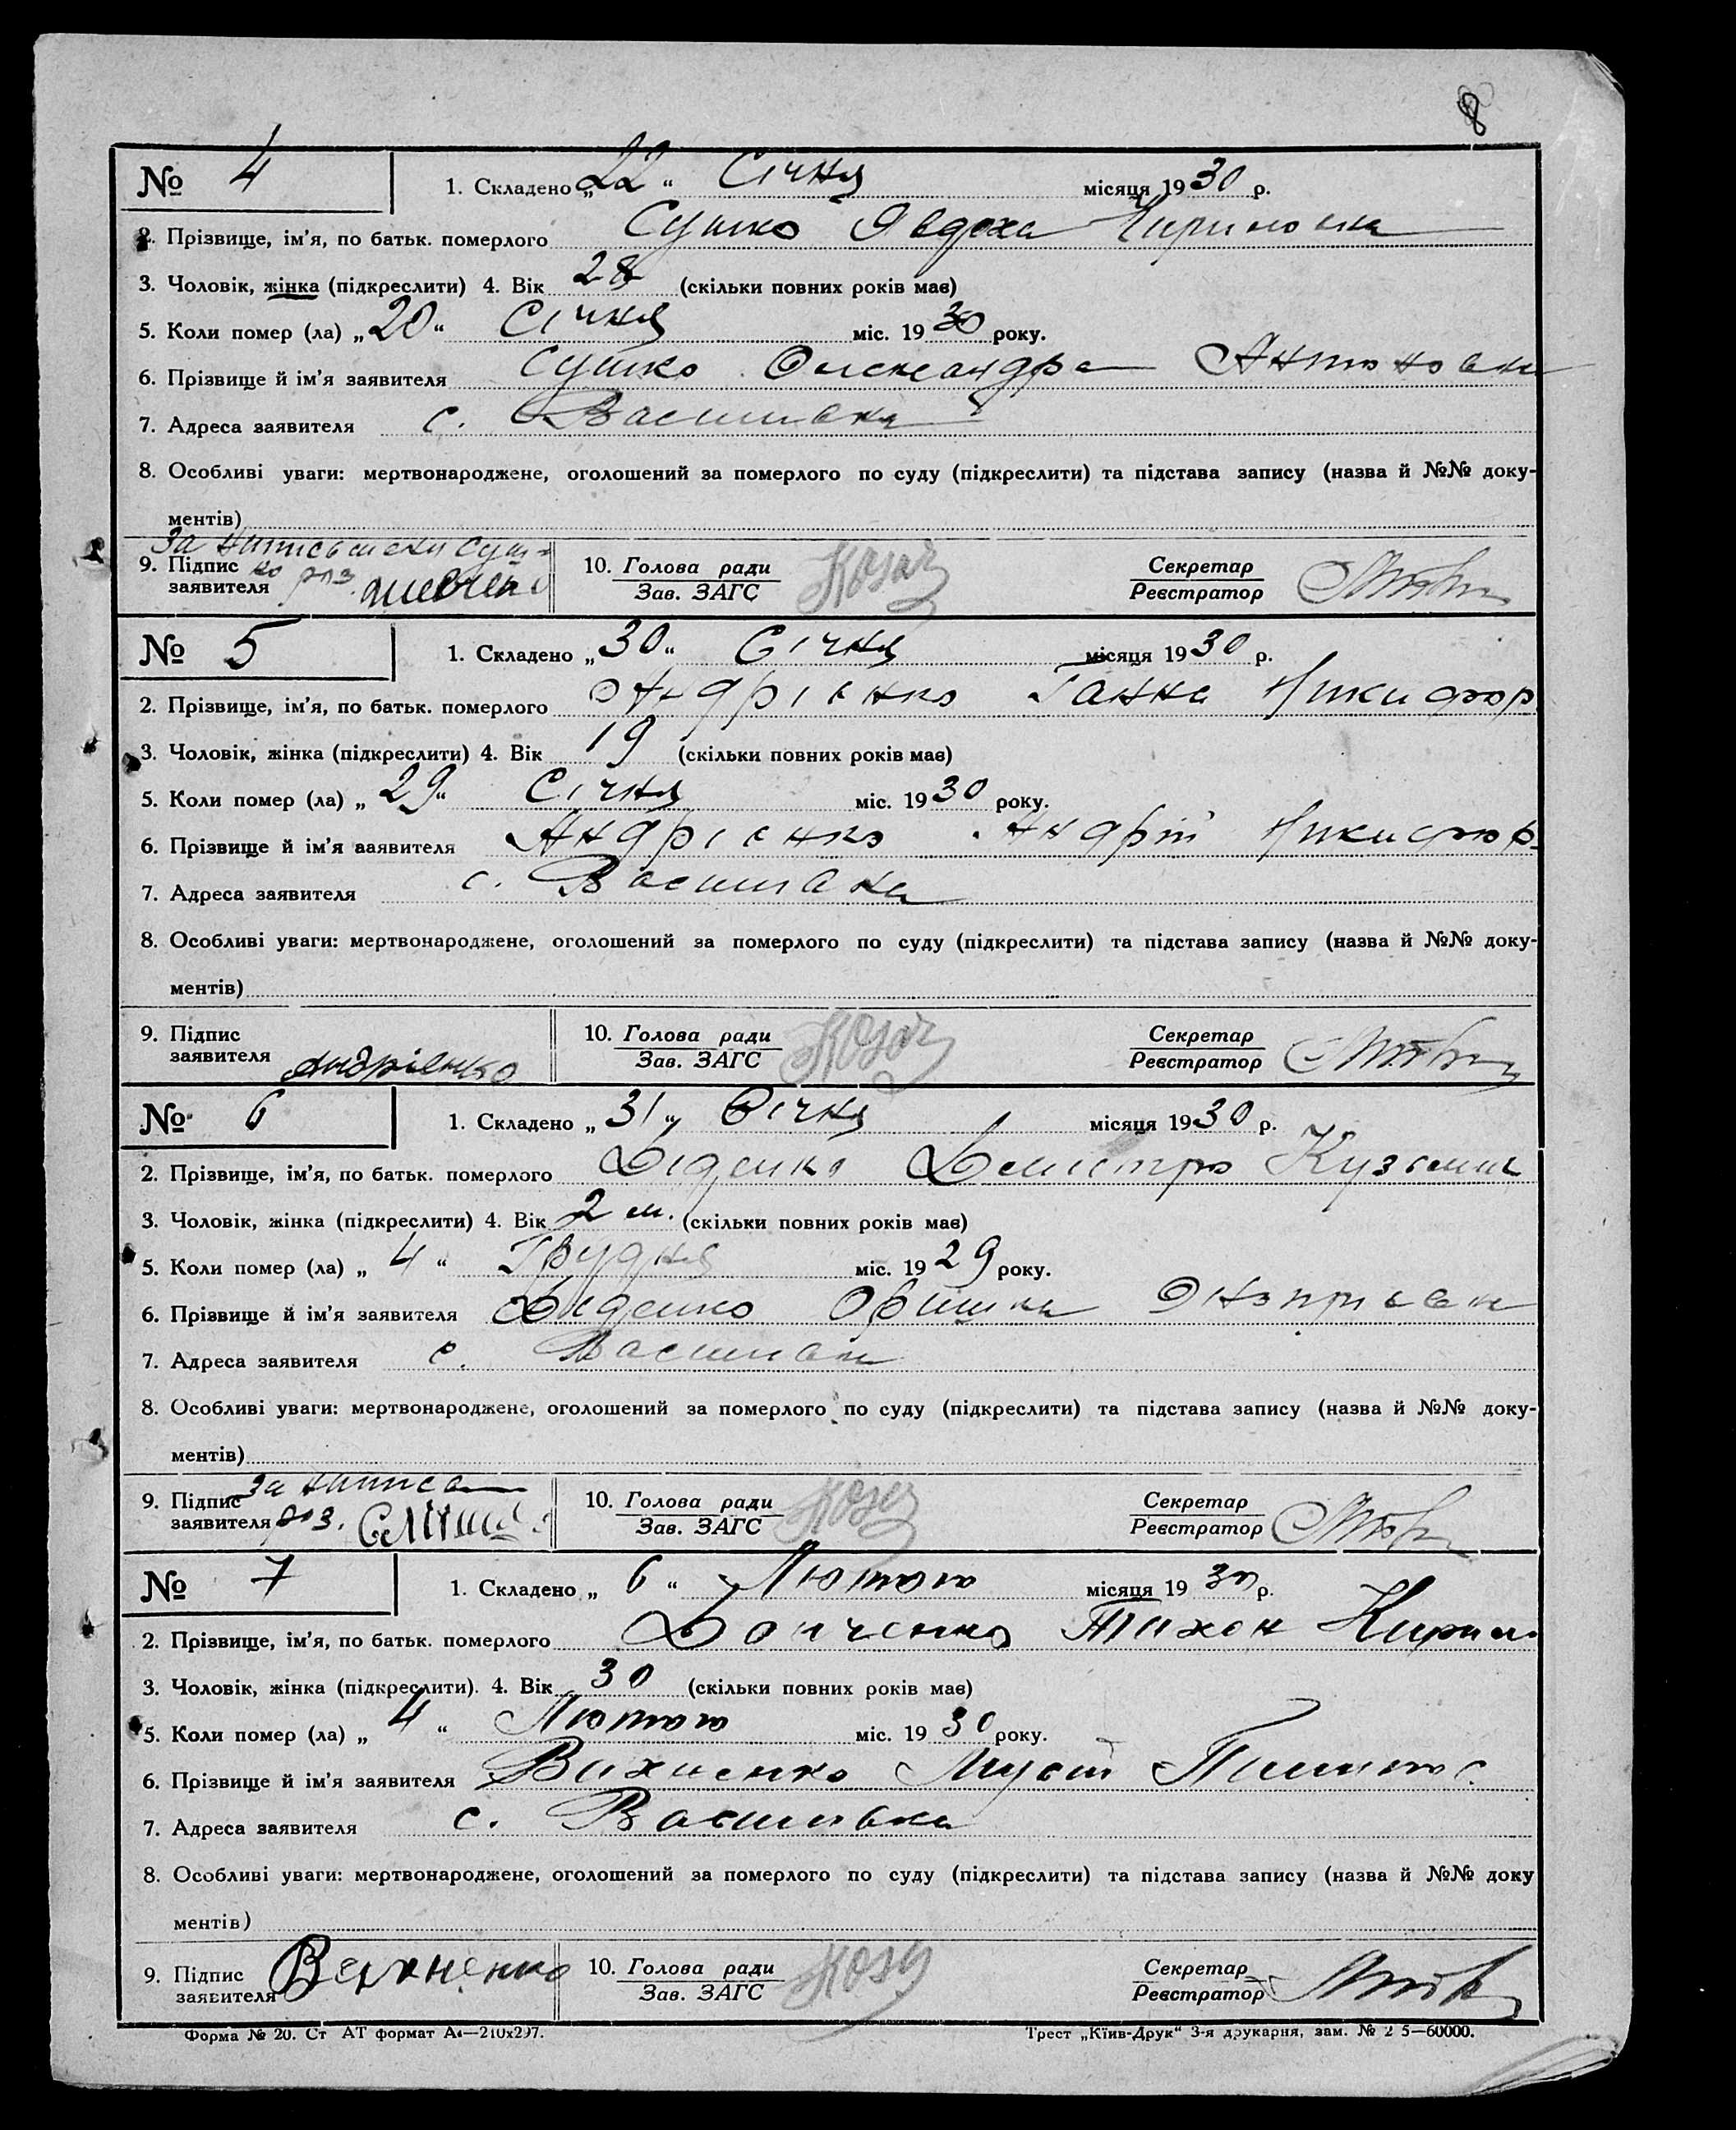 8
№ 4 1. Складено „22“ Січня місяця 1930 р.
2. Прізвище, ім’я, по батьк. померлого Сушко Явдоха
3. Чоловік, жінка (підкреслити) 4. Вік 28 (скільки повних років має)
5. Коли помер (ла) „20“ Січня міс. 1930 року.
6. Прізвище й ім’я заявителя Сушко Олександра Антоновна
7. Адреса заявителя с. Василівка
8. Особливі уваги: мертвонароджене, оголошений за померлого по суду (підкреслити) та підстава запису (назва й №№ доку-
ментів)
9. Підпис 10. Голова ради Козач Секретар
заявителя Зав. ЗАГС Реєстратор
№ 5 1. Складено „30“ Січня місяця 1930 р.
2. Прізвище, ім’я, по батьк. померлого Андрієнко Ганна Никифор.
3. Чоловік, жінка (підкреслити) 4. Вік 19 (скільки повних років має)
5. Коли помер (ла) „29“ Січня міс. 1930 року.
6. Прізвище й ім’я заявителя Андрієнко Андрій Никифор.
7. Адреса заявителя с. Василівка
8. Особливі уваги: мертвонароджене, оголошений за померлого по суду (підкреслити) та підстава запису (назва й №№ доку-
ментів)
9. Підпис 10. Голова ради Козач Секретар
заявителя Андрієнко Зав. ЗАГС Реєстратор
№ 6 1. Складено „31“ Січня місяця 1930 р.
2. Прізвище, ім’я, по батьк. померлого Діденко Дмитро Кузьмич
3. Чоловік, жінка (підкреслити) 4. Вік 2 м. (скільки повних років має)
5. Коли помер (ла) „4“ Грудня міс. 1929 року.
6. Прізвище й ім’я заявителя Діденко Оришка
7. Адреса заявителя с. Василівка
8. Особливі уваги: мертвонароджене, оголошений за померлого по суду (підкреслити) та підстава запису (назва й №№ доку-
ментів)
9. Підпис 10. Голова ради Козач Секретар
заявителя Зав. ЗАГС Реєстратор
№ 7 1. Складено „6“ Лютого місяця 1930 р.
2. Прізвище, ім’я, по батьк. померлого Донченко Тихон Кирил.
3. Чоловік, жінка (підкреслити). 4. Вік 30 (скільки повних років має)
5. Коли помер (ла) „4“ Лютого міс. 1930 року.
6. Прізвище й ім’я заявителя Вахненко Мусій
7. Адреса заявителя с. Василівка
8. Особливі уваги: мертвонароджене, оголошений за померлого по суду (підкреслити) та підстава запису (назва й №№ доку
ментів)
9. Підпис Вахненко 10. Голова ради Козач Секретар
заявителя Зав. ЗАГС Реєстратор
Форма № 20. Ст АТ формат А4—210х297. Трест „Київ-Друк“ 3-я друкарня, зам. № 2 5—60000.